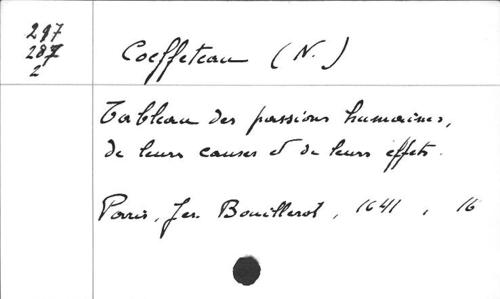 217
287
2
Coeffeteau (N.)
Tableau des passions humaines,
de leurs causes et de leurs effets.
Paris, Jer. Bouillerot, 1641, 16